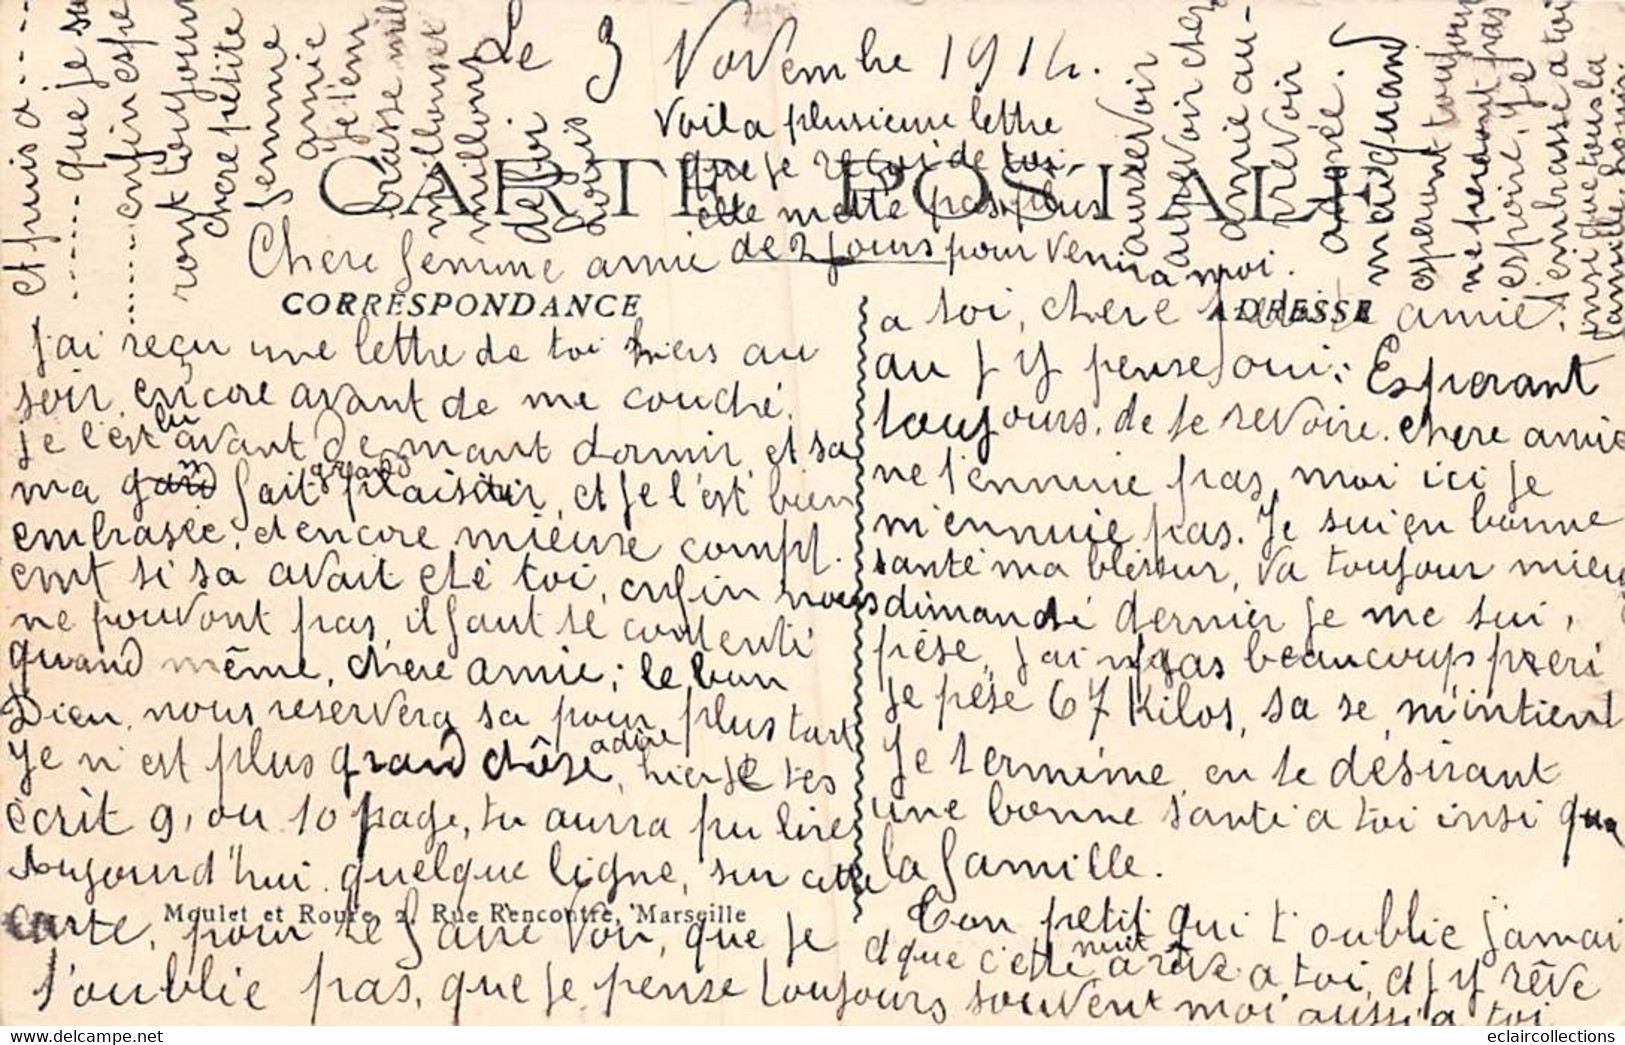 Le 3 Novembre 1914.
Voila plusieure lettre
que je reçoi de toi
elle mette pas plus
de 2 jours pour venir a moi.
CARTE POSTALE
Chere femme amie
CORRESPONDANCE
J'ai reçu une lettre de toi hiers au
soir, encore avant de me couché.
je l'est lu avant de mant dormir, et sa
ma fait grand plaisir, et je l'est bien
embrasée, et encore mieure compl.
emt si sa avait eté toi, enfin nous
ne pouvont pas, il faut se contenté
quand même, chere amie; le bon
Dieu, nous reservera sa pour plus tart
Je n'est plus grand chôse adire, hier je t'es
écrit 9, ou 10 page, tu aurra pu lire
Aujourd'hui quelque ligne, sur cette
carte, pour te faire voir, que je
t'oublie pas, que je pense toujours
Moulet et Roure 2, Rue Rencontre, Marseille
ADRESSE
a toi, chere petite amie.
au j'y pense oui; Esperant
toujours, de te revoire. chere amie
ne t'ennuie pas, moi ici je
m'ennuie pas. Je sui en bonne
santé ma blessur, va toujour mieu
dimanche dernier je me sui,
pésé, j'ai pas beaucoup peri
Je pése 67 Kilos, sa se, mintient
Je termine, en te désirant
une bonne santé a toi insi que
la famille.
Ton petit qui t'oublie jamai
et que cette nuit a rêve a toi, et j'y rêve
souvent moi aussi a toi
et puis a
que je sui
enfin espe
ront toujour
chere petite
femme
amie
je t'en
brasse mille
millons et
millons
aurevoir
aurevoir chere
amie au-
revoir
maiquand
esperant toujour
ne perdont pas
espoire, je
t'embrasse a toi
insi que tous la
famille
eclaircollections
Delcampe.net